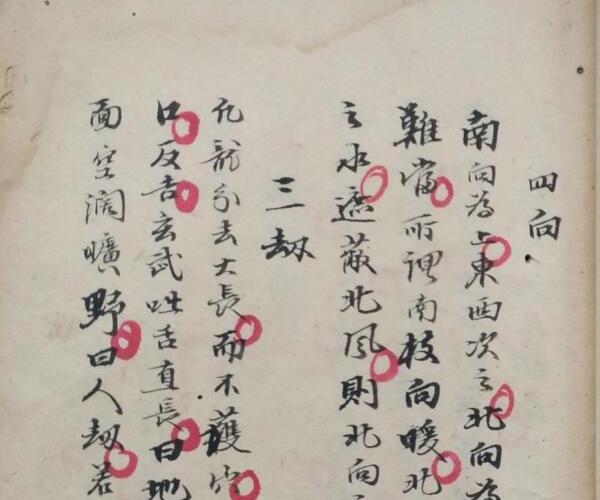 四向
南向為上東西次之北向為
難當所謂南枝向暖北
之水遮蔽北風則北向
三劫
凡龍分去太長而不護
口反舌玄武吐舌直長曰地
面空濶曠野曰人劫若